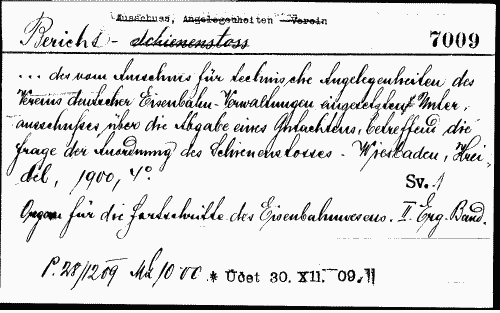 Ausschuss, Angelegenheiten Verein
Bericht - Schienenstoss 7009
... des vom Ausschuss für technische Angelegenheiten des
Vereins deutscher Eisenbahn-Verwaltungen eingesetzten Unter,
ausschusses, über die Abgabe eines Gutachtens, betreffend die
Frage der Anordnung des Schienenstosses - Wiesbaden, Krei,
del, 1900, 4°.
Sv. 1
Organ für die Fortschritte des Eisenbahnwesens. II Erg. Band.
P. 28/12 09 Mk 10 00 * Ücet 30. XII. 09.